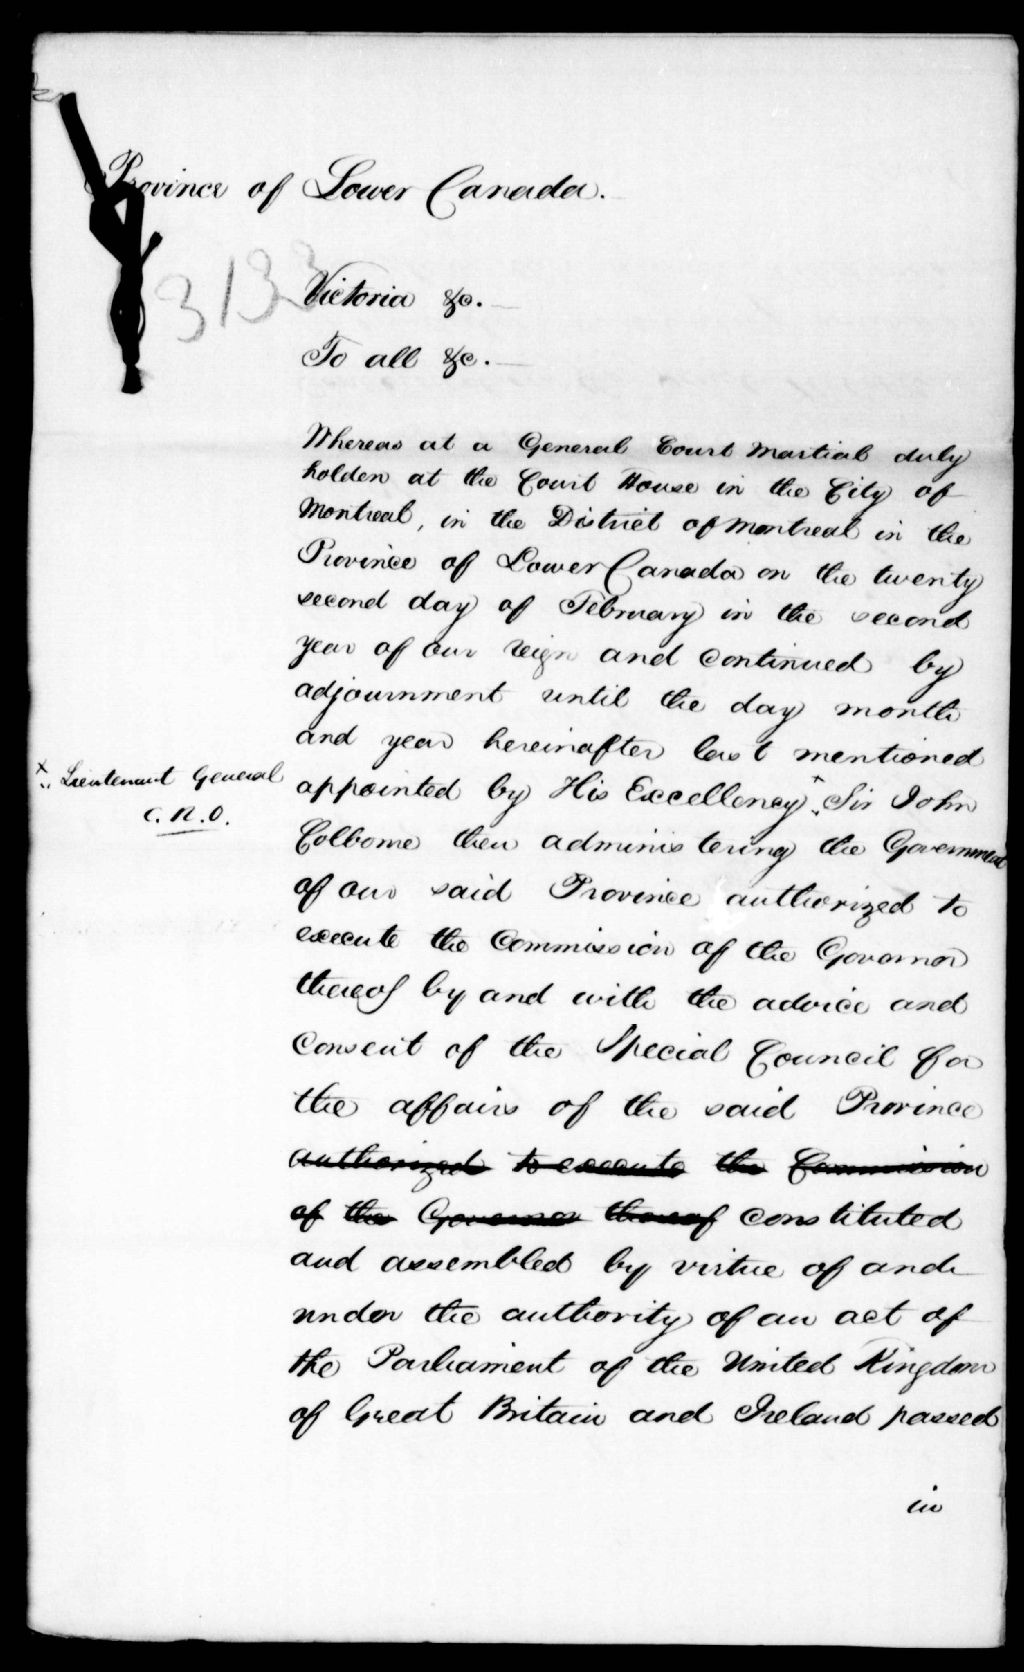 Province of Lower Canada.
3133
Victoria &c.
To all &c.
Whereas at a General Court Martial duly
holden at the Court House in the City of
Montreal, in the District of Montreal in the
Province of Lower Canada on the twenty
second day of February in the second
year of our reign and continued by
adjournment until the day month
and year hereinafter last mentioned
x Lieutenant General
C. R. O.
appointed by His Excellency x Sir John
Colborne then administering the Government
of our said Province authorized to
execute the Commission of the Governor
thereof by and with the advice and
consent of the Special Council for
the affairs of the said Province
authorized to execute the Commission
of the Governor thereof constituted
and assembled by virtue of and
under the authority of an act of
the Parliament of the United Kingdom
of Great Britain and Ireland passed
in